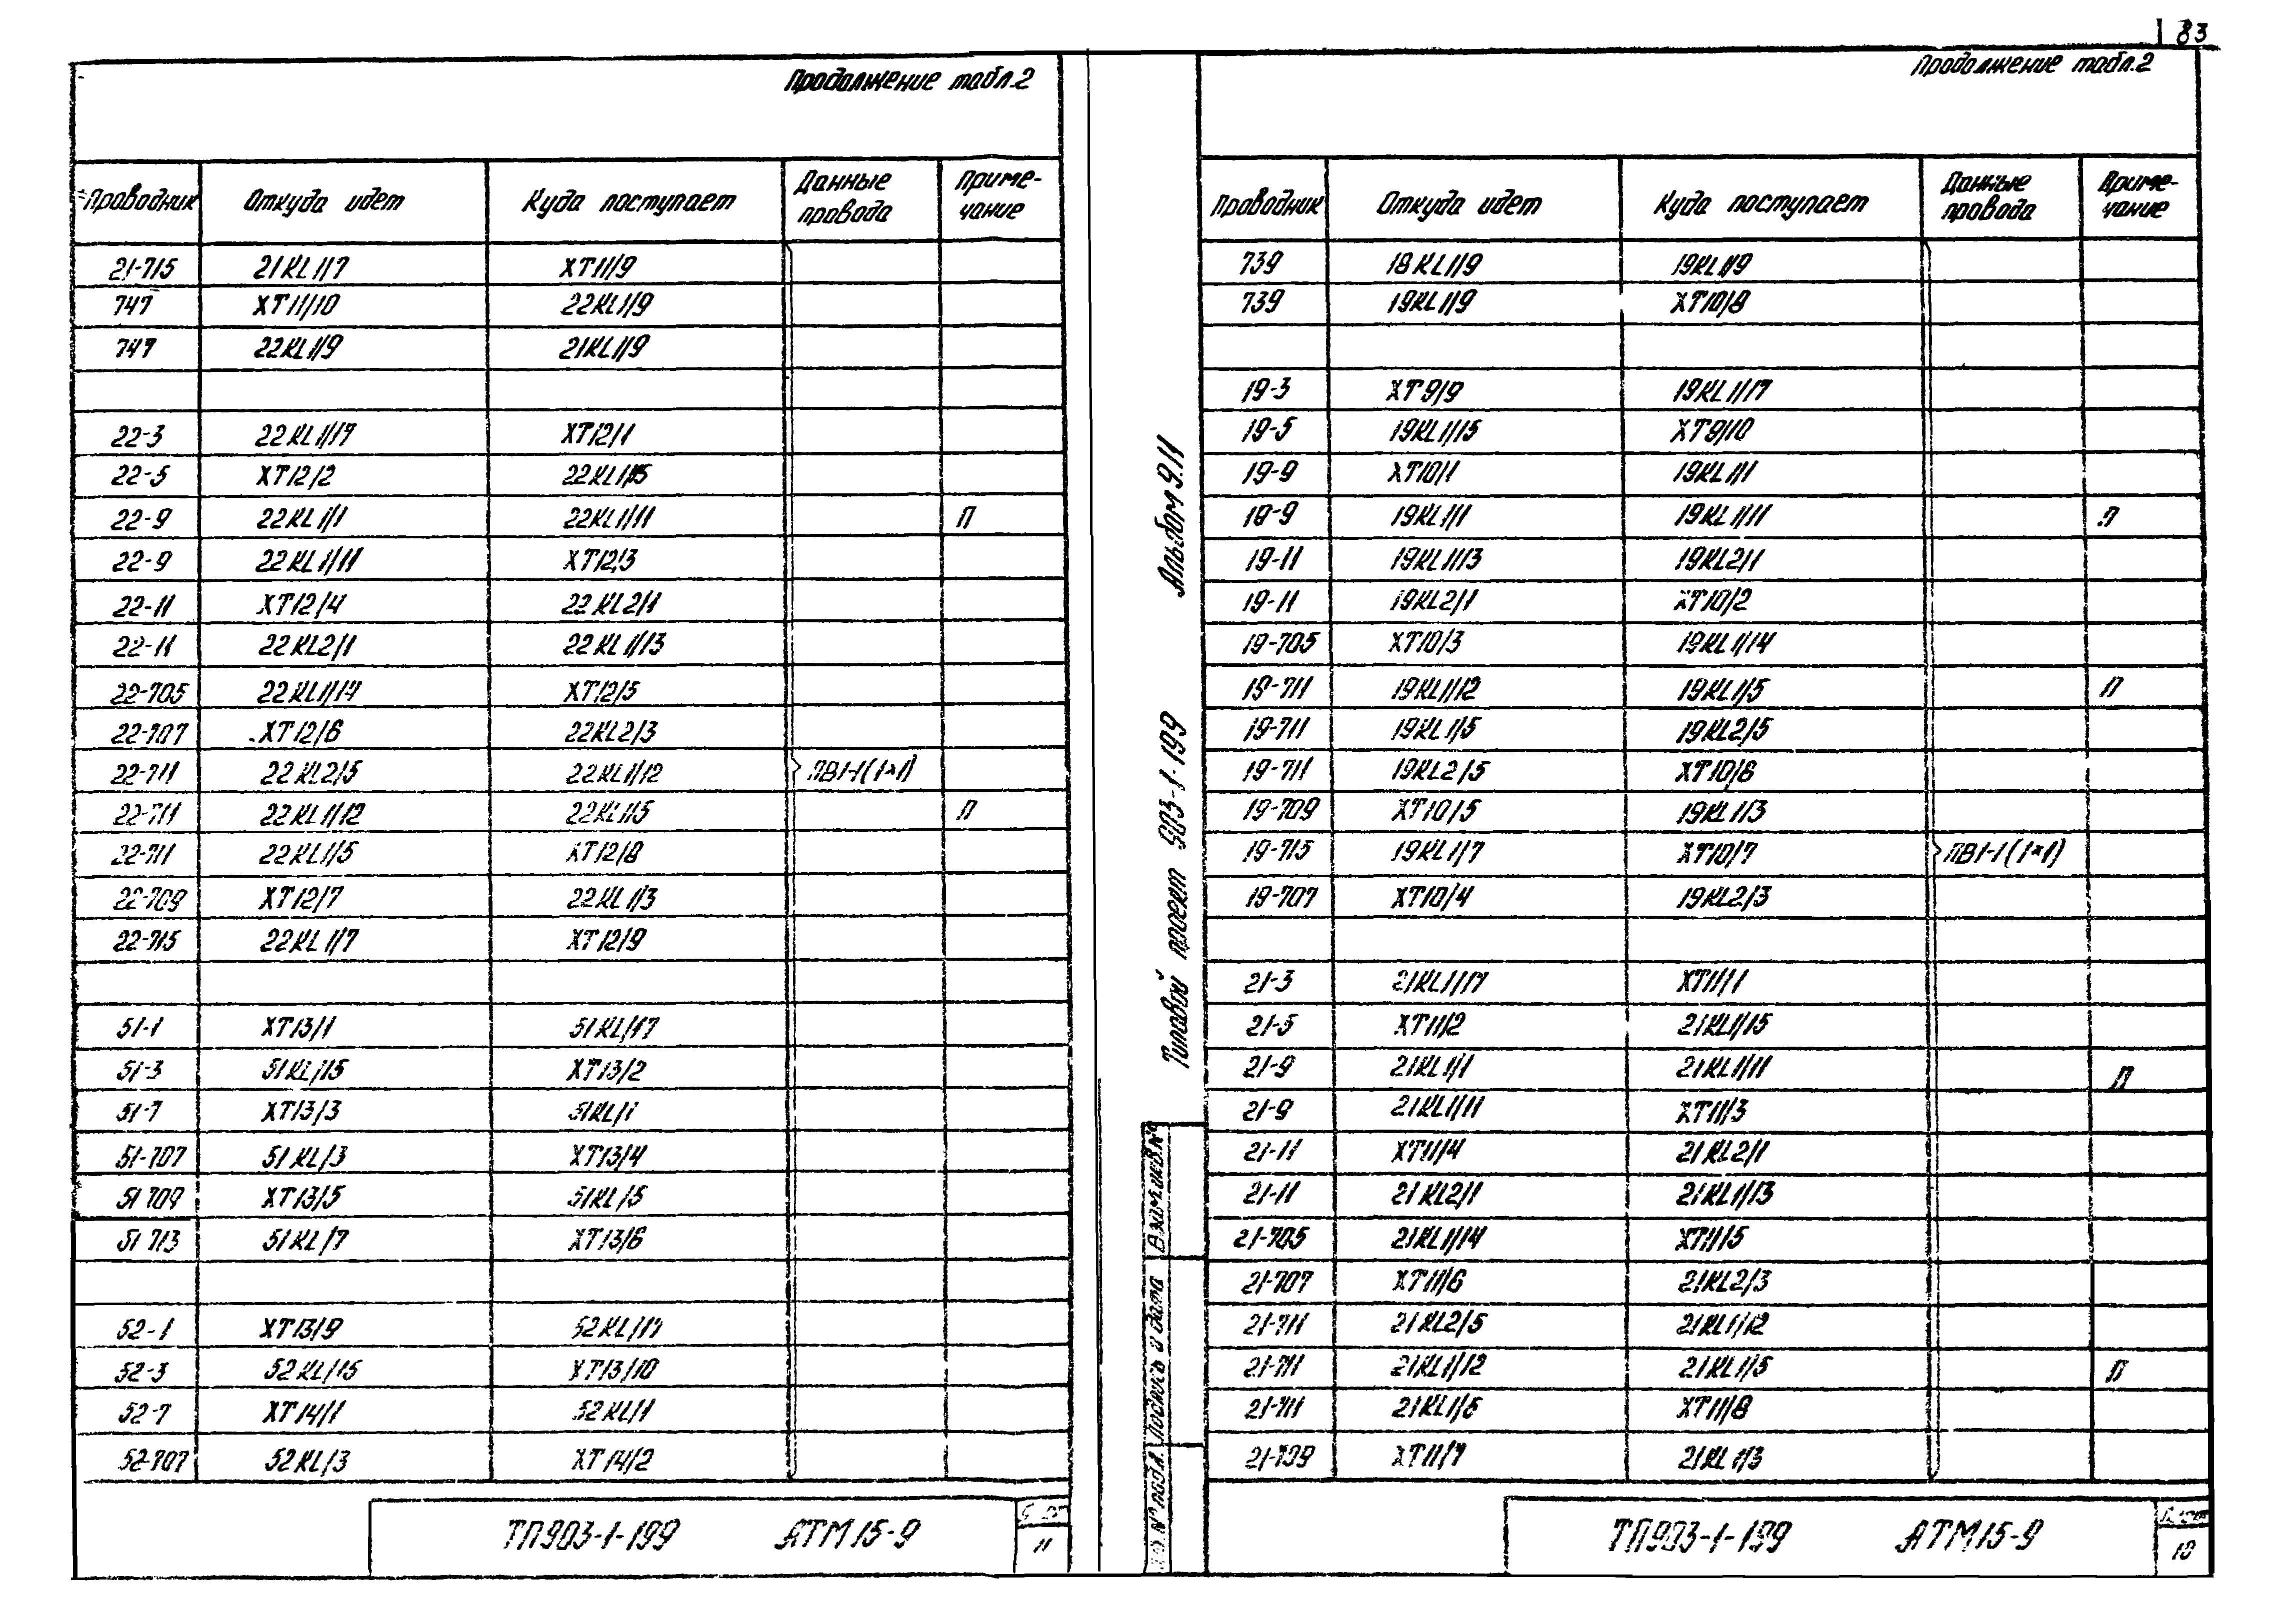 83
Продолжение табл.2
Проводник Откуда идет Куда поступает Данные провода Приме-чание
21-715 21KL1/7 XT11/9
747 XT11/10 22KL1/9
747 22KL1/9 21KL1/9
22-3 22KL1/17 XT12/1
22-5 XT12/2 22KL1/15
22-9 22KL1/1 22KL1/11 П
22-9 22KL1/11 XT12/3
22-11 XT12/4 22KL2/1
22-11 22KL2/1 22KL1/13
22-705 22KL1/14 XT12/5
22-707 XT12/6 22KL2/3
22-711 22KL2/5 22KL1/12 ПВ1-1(1×1)
22-711 22KL1/12 22KL1/5 П
22-711 22KL1/5 XT12/8
22-709 XT12/7 22KL1/3
22-715 22KL1/7 XT12/9
51-1 XT13/1 51KL/17
51-3 51KL/15 XT13/2
51-7 XT13/3 51KL/1
51-707 51KL/3 XT13/4
51 709 XT13/5 51KL/5
51 713 51KL/7 XT13/6
52-1 XT13/9 52KL/17
52-3 52KL/15 XT13/10
52-7 XT14/1 52KL/1
52-707 52KL/3 XT14/2
ТП903-1-199 АТМ15-9
11
Альбом 9.11
Типовой проект 903-1-199
Взам.инв.№
Подпись и дата
№ подл.
Продолжение табл.2
Проводник Откуда идет Куда поступает Данные провода Приме-чание
739 18KL1/9 19KL1/9
739 19KL1/9 XT10/8
19-3 XT9/9 19KL1/17
19-5 19KL1/15 XT9/10
19-9 XT10/1 19KL1/1
19-9 19KL1/1 19KL1/11 П
19-11 19KL1/13 19KL2/1
19-11 19KL2/1 XT10/2
19-705 XT10/3 19KL1/14
19-711 19KL1/12 19KL1/5 П
19-711 19KL1/5 19KL2/5
19-711 19KL2/5 XT10/6
19-709 XT10/5 19KL1/3
19-715 19KL1/7 XT10/7 ПВ1-1(1×1)
19-707 XT10/4 19KL2/3
21-3 21KL1/17 XT11/1
21-5 XT11/2 21KL1/15
21-9 21KL1/1 21KL1/11 П
21-9 21KL1/11 XT11/3
21-11 XT11/4 21KL2/1
21-11 21KL2/1 21KL1/13
21-705 21KL1/14 XT11/5
21-707 XT11/6 21KL2/3
21-711 21KL2/5 21KL1/12
21-711 21KL1/12 21KL1/5 П
21-711 21KL1/5 XT11/8
21-709 XT11/7 21KL1/3
ТП903-1-199 АТМ15-9
Лист
10